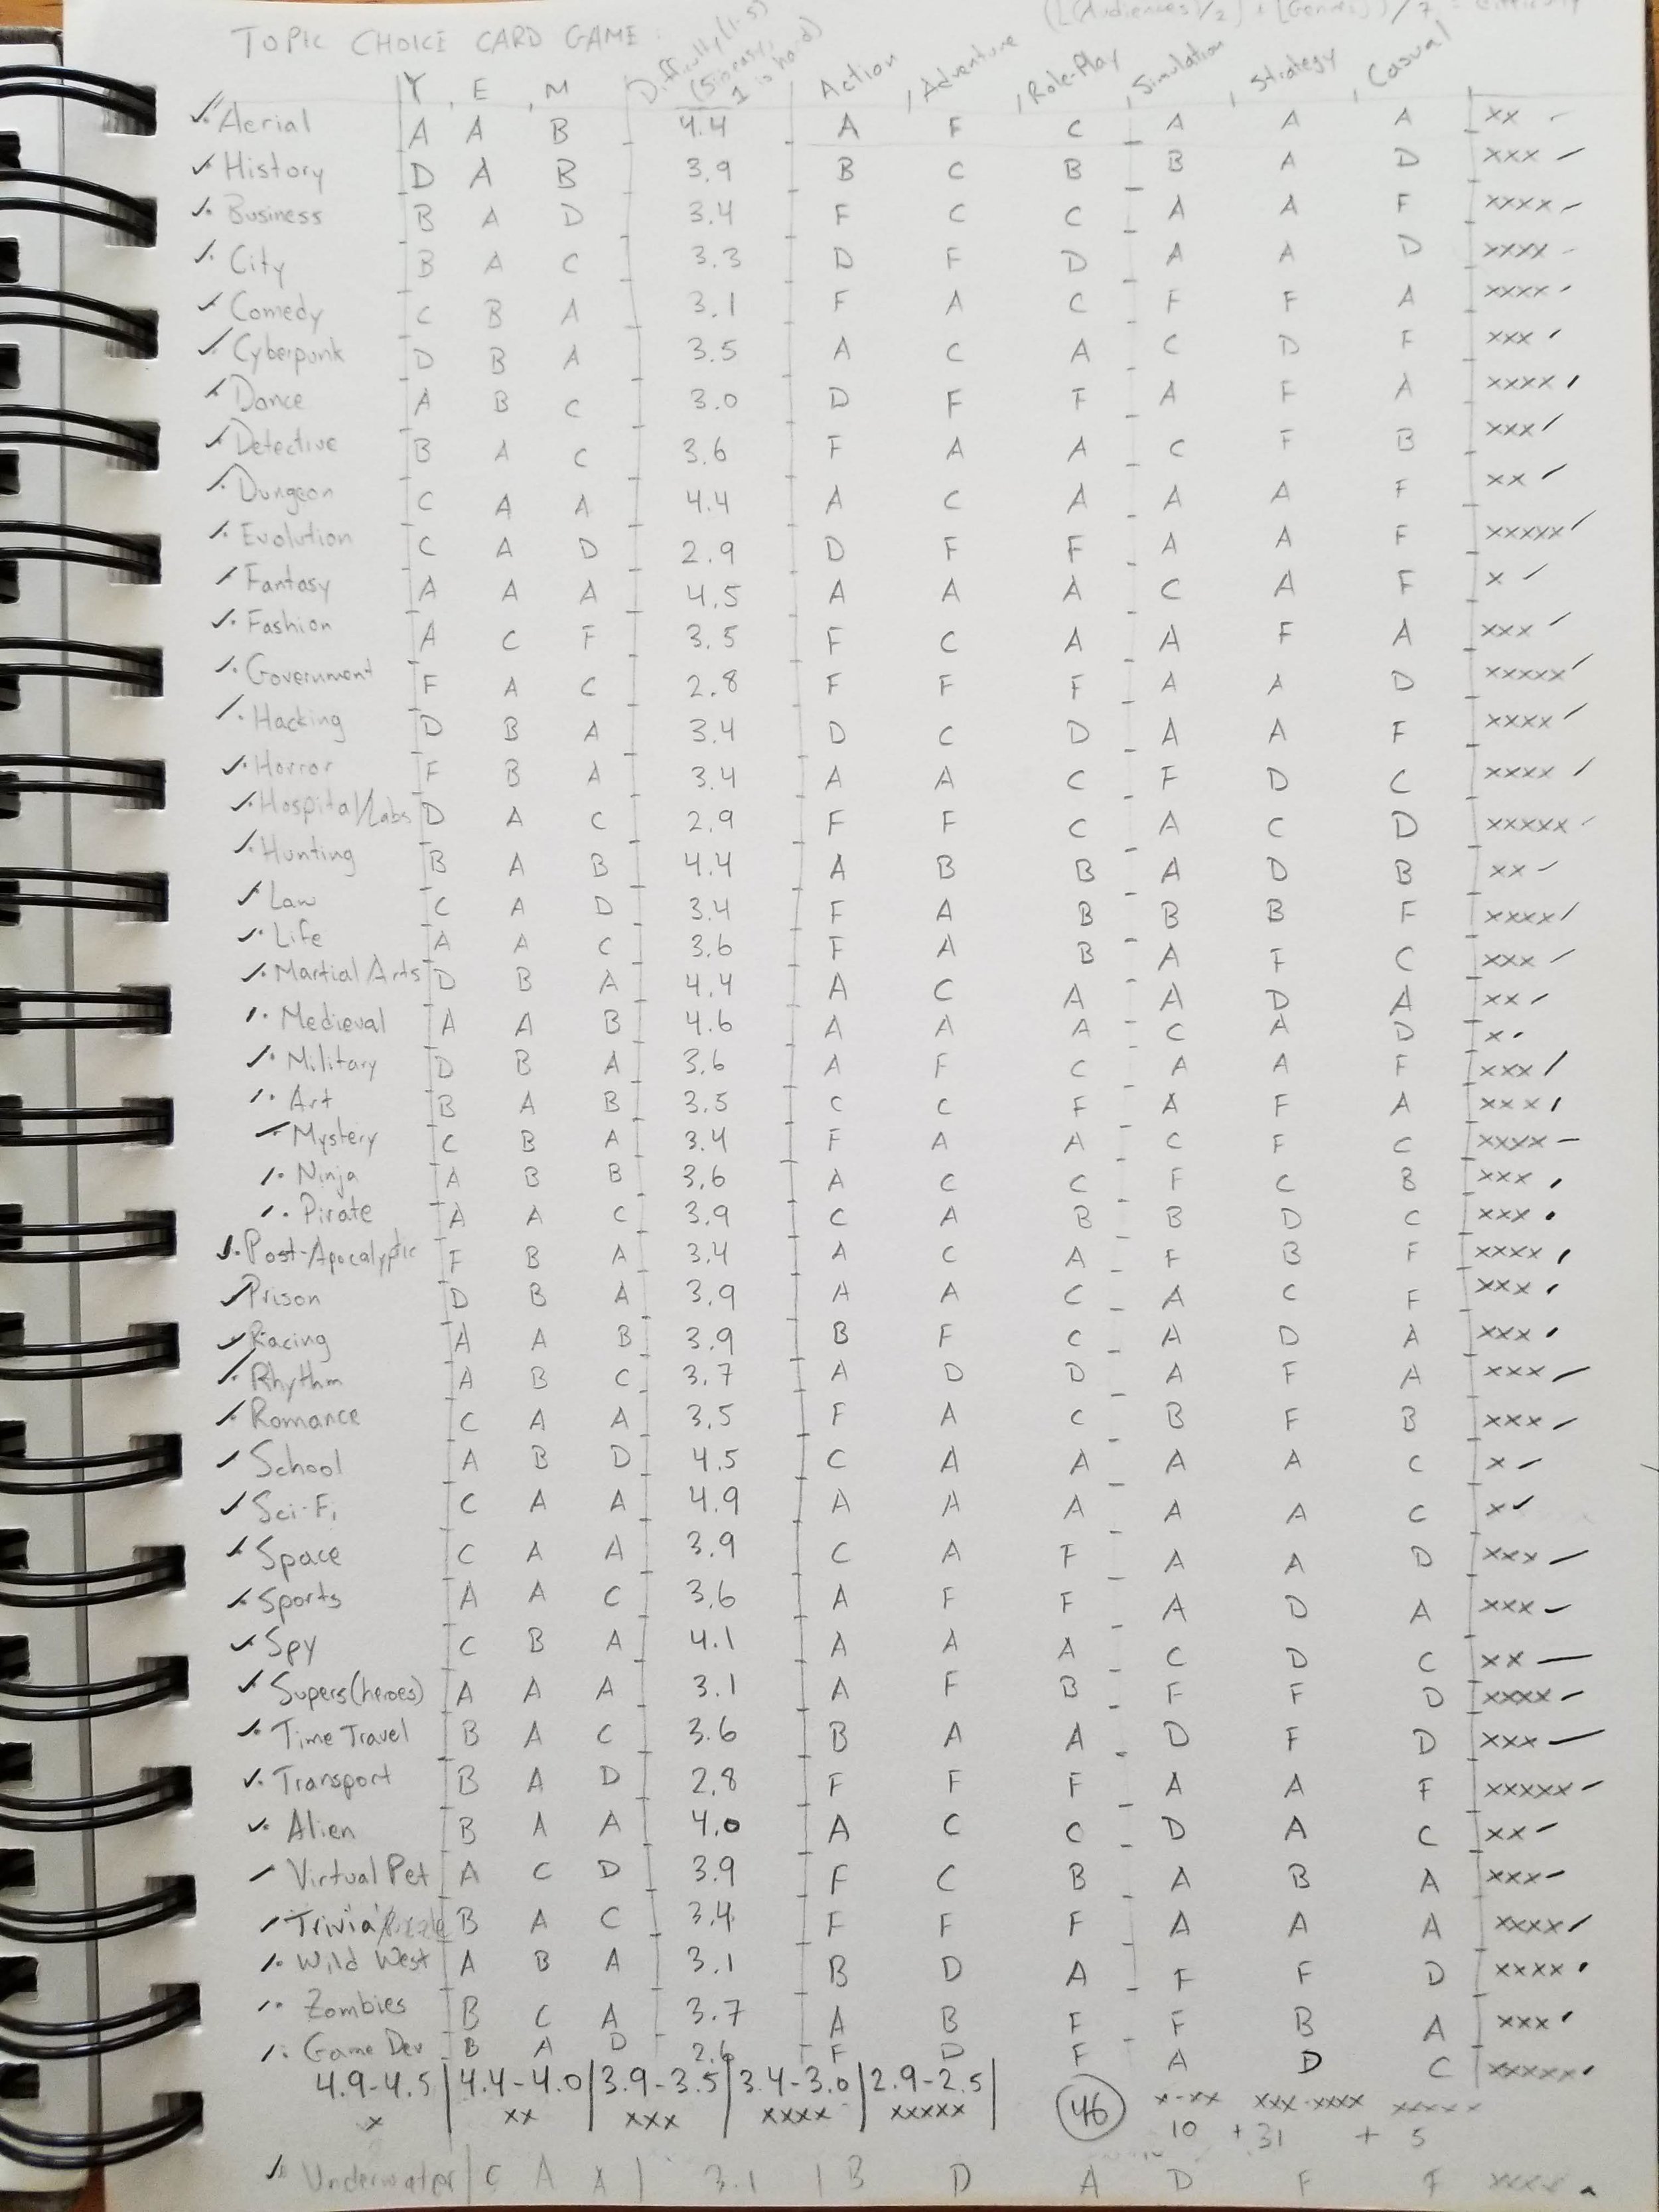 ([(Audiences)/2] + [Genres])/7 = difficulty
TOPIC CHOICE CARD GAME:
Y, E, M Difficulty (1-5) (5 is easy, 1 is hard) Action, Adventure, Role-Play, Simulation, Strategy, Casual
✓. Aerial A A B 4.4 A F C A A A xx -
✓. History D A B 3.9 B C B B A D xxx -
✓. Business B A D 3.4 F C C A A F xxxx -
✓. City B A C 3.3 D F D A A D xxxx -
✓ Comedy C B A 3.1 F A C F F A xxxx -
✓. Cyberpunk D B A 3.5 A C A C D F xxx -
✓ Dance A B C 3.0 D F F A F A xxxx -
✓ Detective B A C 3.6 F A A C F B xxx /
✓. Dungeon C A A 4.4 A C A A A F xx /
✓. Evolution C A D 2.9 D F F A A F xxxxx /
✓ Fantasy A A A 4.5 A A A C A F x /
✓. Fashion A C F 3.5 F C A A F A xxx /
✓. Government F A C 2.8 F F F A A D xxxxx /
✓. Hacking D B A 3.4 D C D A A F xxxx /
✓. Horror F B A 3.4 A A C F D C xxxx /
✓. Hospital/Labs D A C 2.9 F F C A C D xxxxx -
✓. Hunting B A B 4.4 A B B A D B xx -
✓ Law C A D 3.4 F A B B B F xxxx /
✓. Life A A C 3.6 F A B A F C xxx -
✓. Martial Arts D B A 4.4 A C A A D A xx -
✓. Medieval A A B 4.6 A A A C A D x -
✓. Military D B A 3.6 A F C A A F xxx /
✓. Art B A B 3.5 C C F A F A xxx /
✓ Mystery C B A 3.4 F A A C F C xxxx -
✓. Ninja A B B 3.6 A C C F C B xxx /
✓. Pirate A A C 3.9 C A B B D C xxx •
✓. Post-Apocalyptic F B A 3.4 A C A F B F xxxx /
✓ Prison D B A 3.9 A A C A C F xxx /
✓ Racing A A B 3.9 B F C A D A xxx •
✓. Rhythm A B C 3.7 A D D A F A xxx -
✓. Romance C A A 3.5 F A C B F B xxx -
✓ School A B D 4.5 C A A A A C x -
✓ Sci-Fi C A A 4.9 A A A A A C x ✓
✓ Space C A A 3.9 C A F A A D xxx -
✓. Sports A A C 3.6 A F F A D A xxx -
✓ Spy C B A 4.1 A A A C D C xx -
✓ Supers(heroes) A A A 3.1 A F B F F D xxxx -
✓. Time Travel B A C 3.6 B A A D F D xxx -
✓. Transport B A D 2.8 F F F A A F xxxxx -
✓. Alien B A A 4.0 A C C D A C xx -
✓ Virtual Pet A C D 3.9 F C B A B A xxx -
✓ Trivia/Puzzle B A C 3.4 F F F A A A xxxx /
✓. Wild West A B A 3.1 B D A F F D xxxx •
✓. Zombies B C A 3.7 A B F F B A xxx /
✓. Game Dev B A D 2.6 F D F A D C xxxxx •
4.9-4.5 | 4.4-4.0 | 3.9-3.5 | 3.4-3.0 | 2.9-2.5 |
x xx xxx xxxx xxxxx
46 x-xx xxx-xxxx xxxxx
10 + 31 + 5
✓. Underwater C A A 3.1 B D A D F F xxxx -